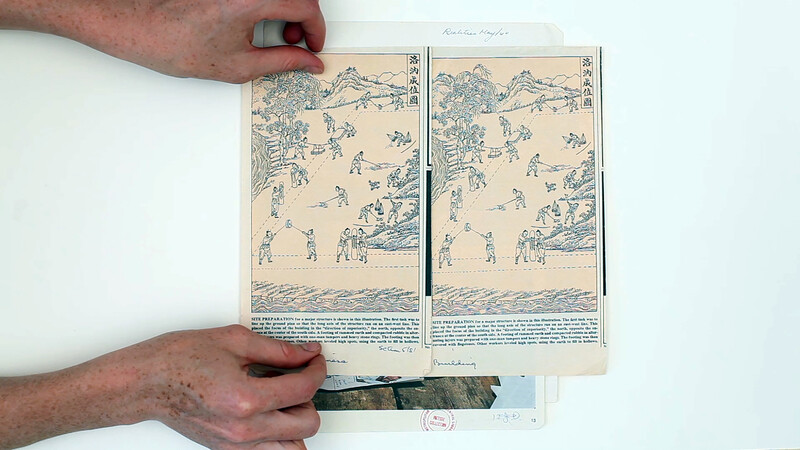 洛汭成位圖
SITE PREPARATION for a major structure is shown in this illustration. The first task was to
line up the ground plan so that the long axis of the structure ran on an east-west line. This
placed the focus of the building in the "direction of superiority," the north, opposite the en-
trance at the center of the south side. A footing of rammed earth and compacted rubble in alter-
layers was prepared with two-man tampers and heavy stone rings. The footing was then
Other workers leveled high spots, using the earth to fill in hollows.
洛汭成位圖
SITE PREPARATION for a major structure is shown in this illustration. The first task was to
line up the ground plan so that the long axis of the structure ran on an east-west line. This
placed the focus of the building in the "direction of superiority," the north, opposite the en-
trance at the center of the south side. A footing of rammed earth and compacted rubble in alter-
nating layers was prepared with two-man tampers and heavy stone rings. The footing was then
covered with flagstones. Other workers leveled high spots, using the earth to fill in hollows.
Building